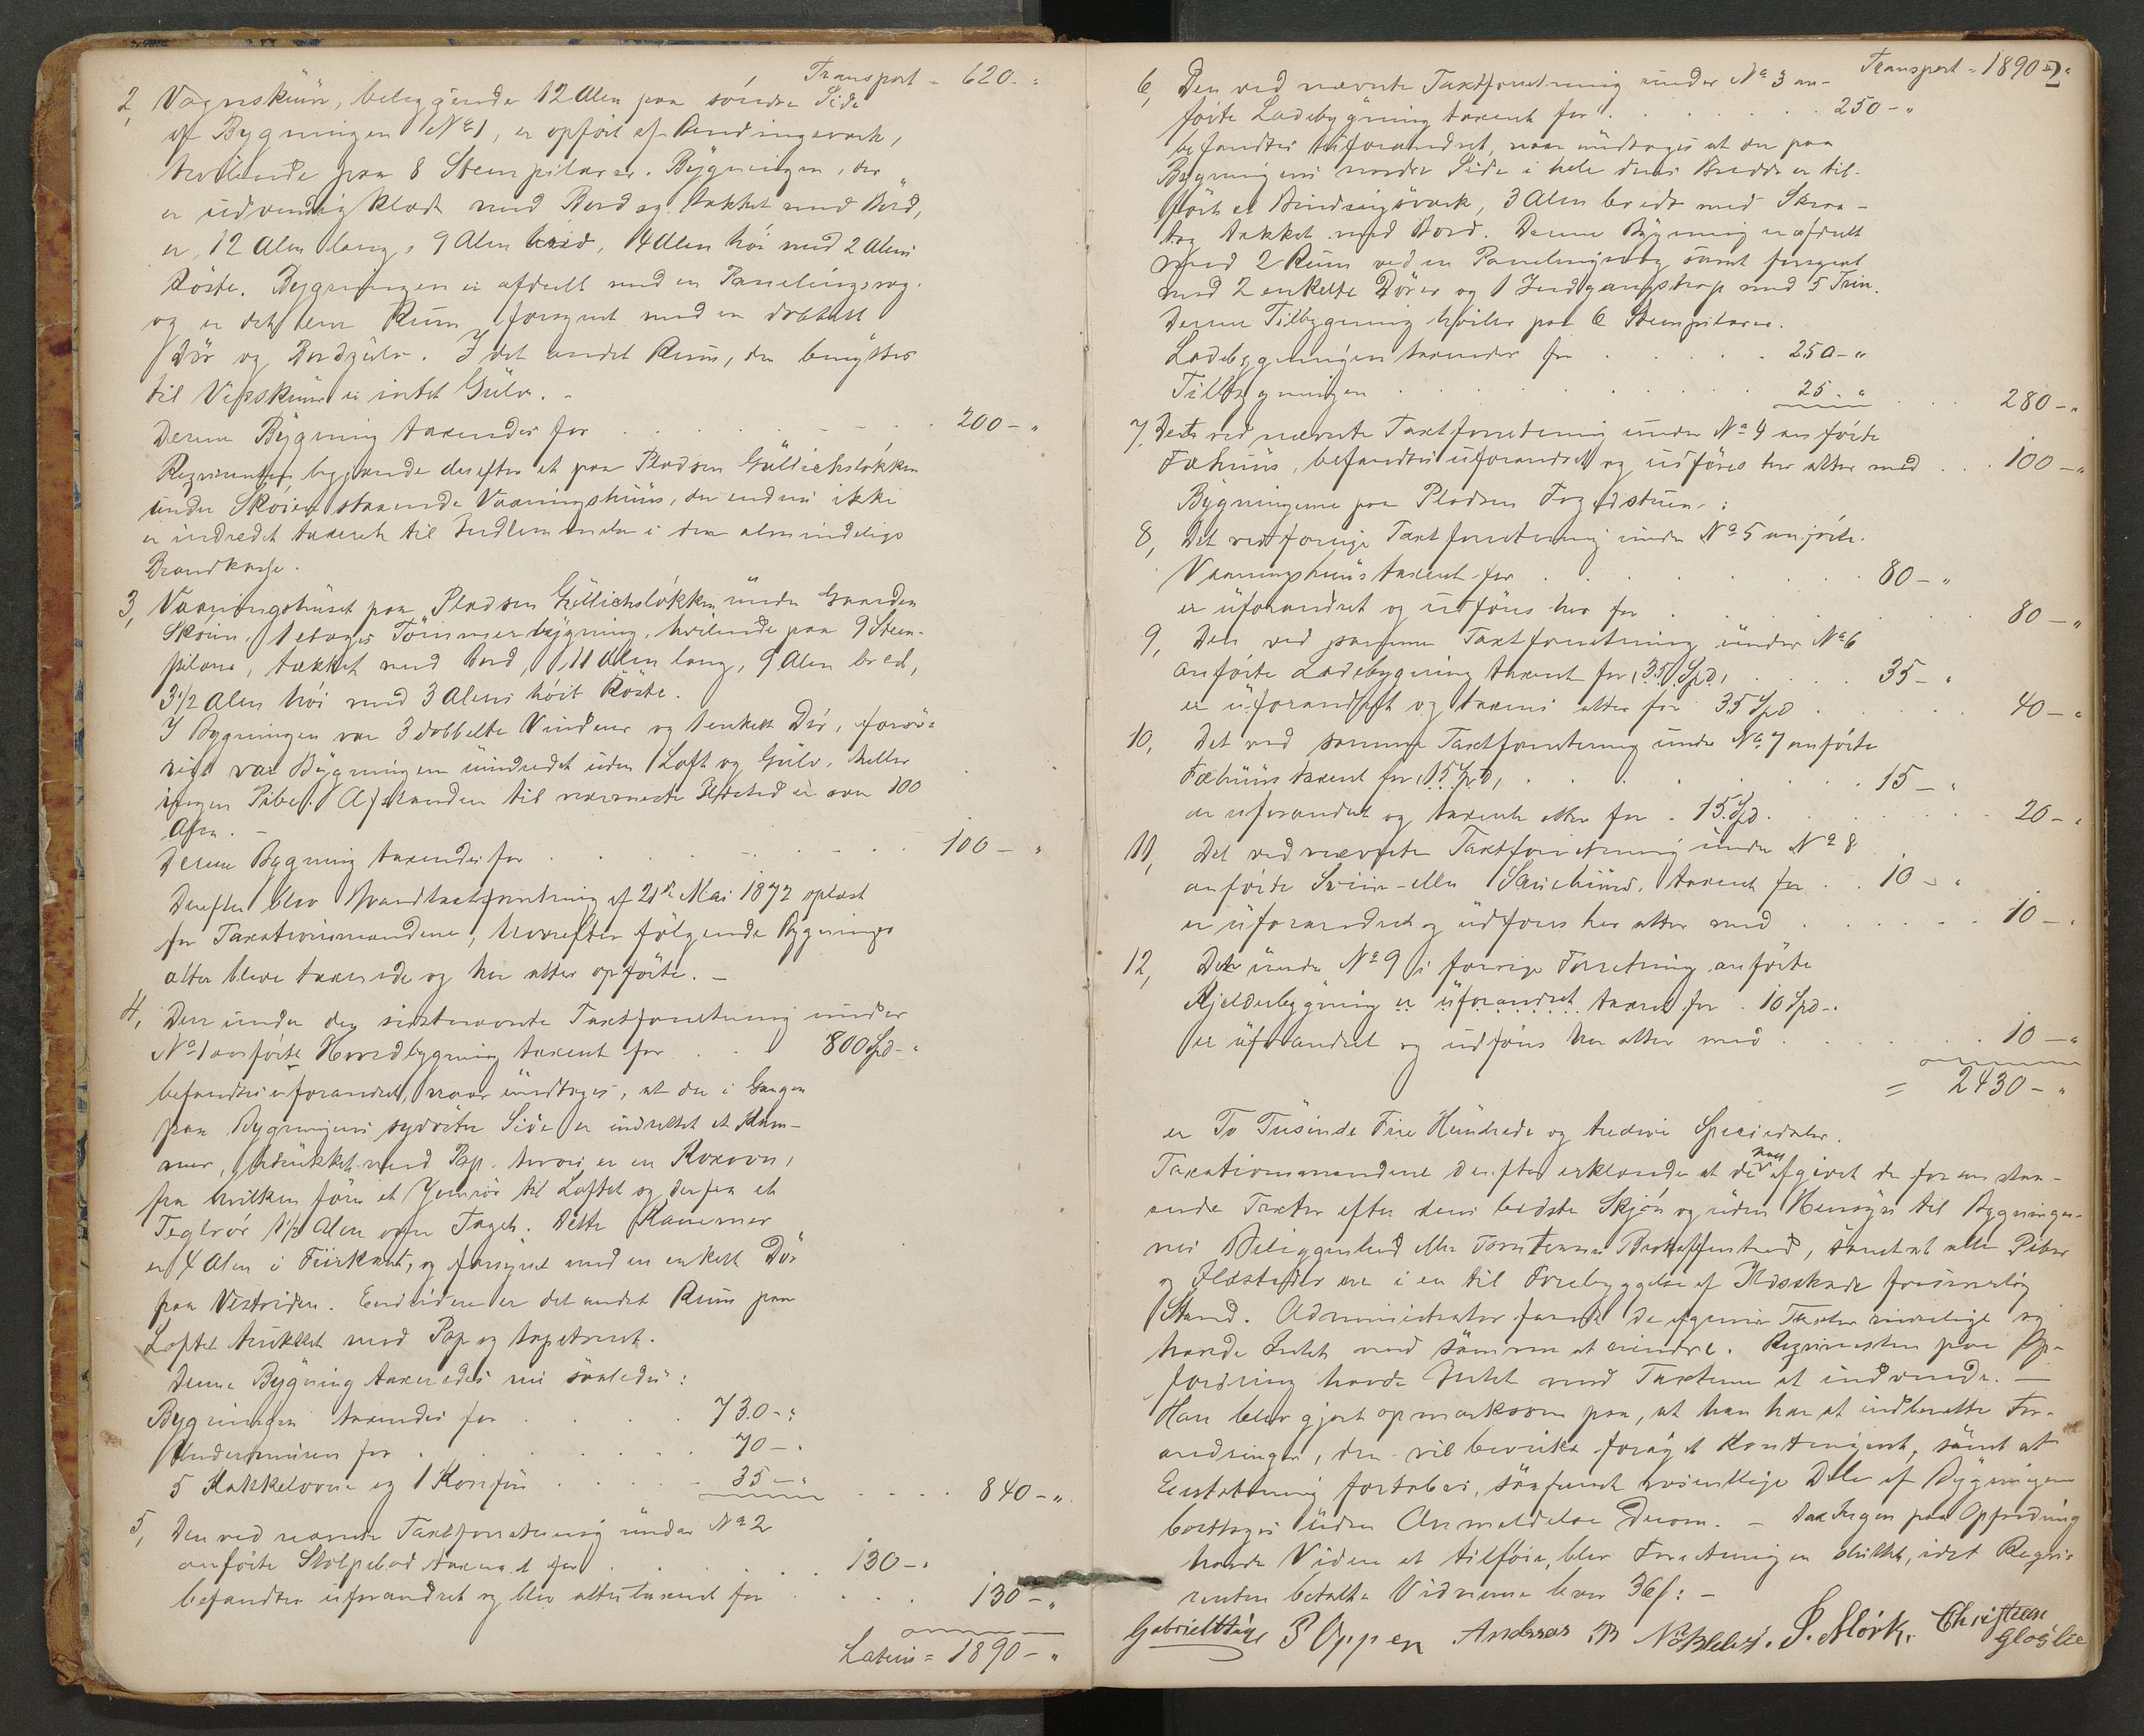 Transport = 620 - "
2, Vognskuur, beliggende 12 Alen paa søndre Side
af Bygningen No 1, er opført af Bindingsværk,
hvilende paa 8 Steenpilarer. Bygningen, der
er udvendig klædt med Bord og tækket med Bord,
er 12 Alen lang, 9 Alen bred, 4 Alen høi med 2 Alens
Røste. Bygningen er afdeelt med en Panelingsvæg
og er det ene Rum forsynet med en dobbelt
Dør og Bordgulv. I det andet Rum, der benyttes
til Vedskuur er intet Gulv. -
Denne Bygning taxeredes for . . . . 200 - "
Rekvirenten begjærede derefter et paa Pladsen Güllichsløkken
under Skøien staaende Vaaningshuus, der endnu ikke
er indredet taxeret til Indlemmelse i den almindelige
Brandkasse.
3, Vaaningshuset paa Pladsen Güllichsløkken under Gaarden
Skøien, 1 etages Tømmerbygning, hvilende paa 9 Steen-
pilarer, tækket med Bord, 11 Alen lang, 9 Alen bred,
3 1/2 Alen høi med 3 Alens høit Røste.
I Bygningen var 3 dobbelte Vinduer og 1 enkelt Dør, forøv-
rigt var Bygningen uindredet uden Loft og Gulv, heller
ingen Pibe. Afstanden til nærmeste Ildsted er over 100
Alen. -
Denne Bygning taxeredes for . . . . 100 - "
Derefter blev Brandtaxtforretning af 21de Mai 1872 oplæst
for Taxationsmændene, hvorefter følgende Bygninger
atter bleve taxerede og her atter opførte. -
4, Den under den sidstnævnte Taxtforretning under
No 1 anførte Hovedbygning taxeret for . . 800 Spd - "
befandtes uforandret, naar undtages, at der i Gangen
paa Bygningens sydøstre Side er indrettet et Kam-
mer, betrukket med Pap, hvori er en Kakovn,
fra hvilken fører et Jernrør til Loftet og derfra et
Teglrør 1 1/2 Alen over Taget. Dette Kammer
er 4 Alen i Fiirkant, og forsynet med en enkelt Dør
paa Vestsiden. Endvidere er det andet Rum paa
Loftet trukket med Pap og tapetseret.
Denne Bygning taxeredes nu saaledes:
Bygningen taxeredes for . . . . 730 - "
Undermuren for . . . . 70 - "
5 Kakkelovne og 1 Komfur . . . . 35 - " . . . . 840 - "
5, Den ved nævnte Taxtforretning under No 2
anførte Stolpebod taxeret for . . . . 130 - "
befandtes uforandret og blev atter taxeret for . . . . 130 - "
Lateris = 1890 - "
Transport = 1890 - "
2
6, Den ved nævnte Taxtforretning under No 3 an-
førte Ladebygning taxeret for . . . . 250 - "
befandtes uforandret, naar undtages at der paa
Bygningens nordre Side i hele dens Bredde er til-
ført et Bindingsværk, 3 Alen bredt med Skraa-
tag tækket med Bord. Denne Bygning er afdeelt
med 2 Rum ved en Panelingsvæg samt forsynet
med 2 enkelte Dører og 1 Indgangstrap med 5 Trin.
Denne Tilbygning hviler paa 6 Steenpilarer.
Ladebygningen taxeredes for . . . . 250 - "
Tilbygningen . . . . 25 - " . . . . 280 - "
7, Dets ved nævnte Taxtforretning under No 4 anførte
Fæhuus, befandtes uforandret og udføres her atter med . . . 100 - "
Bygningerne paa Pladsen Fogdstuen:
8, Det ved forrige Taxtforretning under No 5 anførte
Vaaningshuus taxeret for . . . . 80 - "
er uforandret og udføres her for . . . . 80 - "
9, Den ved samme Taxtforretning under No 6
anførte Ladebygning taxeret for, 35 Spd, . . . . 35 - "
er uforandret og taxeres atter for 35 Spd . . . . 40 - "
10, Det ved samme Taxtforretning under No 7 anførte
Fæhuus taxeret for, 15 Spd, . . . . 15 - "
er uforandret og taxeret atter for . 15 Spd. . . . . 20 - "
11, Det ved nævnte Taxtforretning under No 8
anførte Sviin- eller Sauehuus, taxeret for . . 10 - "
er uforandret og udføres her atter med . . . . 10 - "
12, Den under No 9 i forrige Forretning anførte
Kjelderbygning er uforandret taxeret for . 10 Spd -.
er uforandret og udføres her atter med . . . . 10 - "
= 2430 - "
er To Tusinde Fire Hundrede og tredive Speciedaler.
Taxationsmændene derefter erklærede at de har afgivet de foranstaa-
ende Taxter efter deres bedste Skjøn og uden Hensyn til Bygninger-
nes Beliggenhed eller Tomtens Beskaffenhed, samt at alle Piber
og Ildsteder ere i en til Forebyggelse af Ildsskade forsvarlig
Stand. Administrator fandt de afgivne Taxter rimelige og
havde Intet ved samme at erindre. Rekvirenten paa Op-
fordring havde Intet mod Taxterne at indvende. -
Han blev gjort opmærksom paa, at han har at indberette For-
andringer, der vil bevirke forøget Kontingent, samt at
Erstatning fortabes, saafremt væsentlige Dele af Bygningerne
borttages uden Anmeldelse derom. - Da Ingen paa Opfordring
havde Videre at tilføie, blev Forretningen sluttet, idet Rekvi-
renten betalte Vidnerne hver 36 ß: -
P Oppen Andreas S. Mørk. Christian